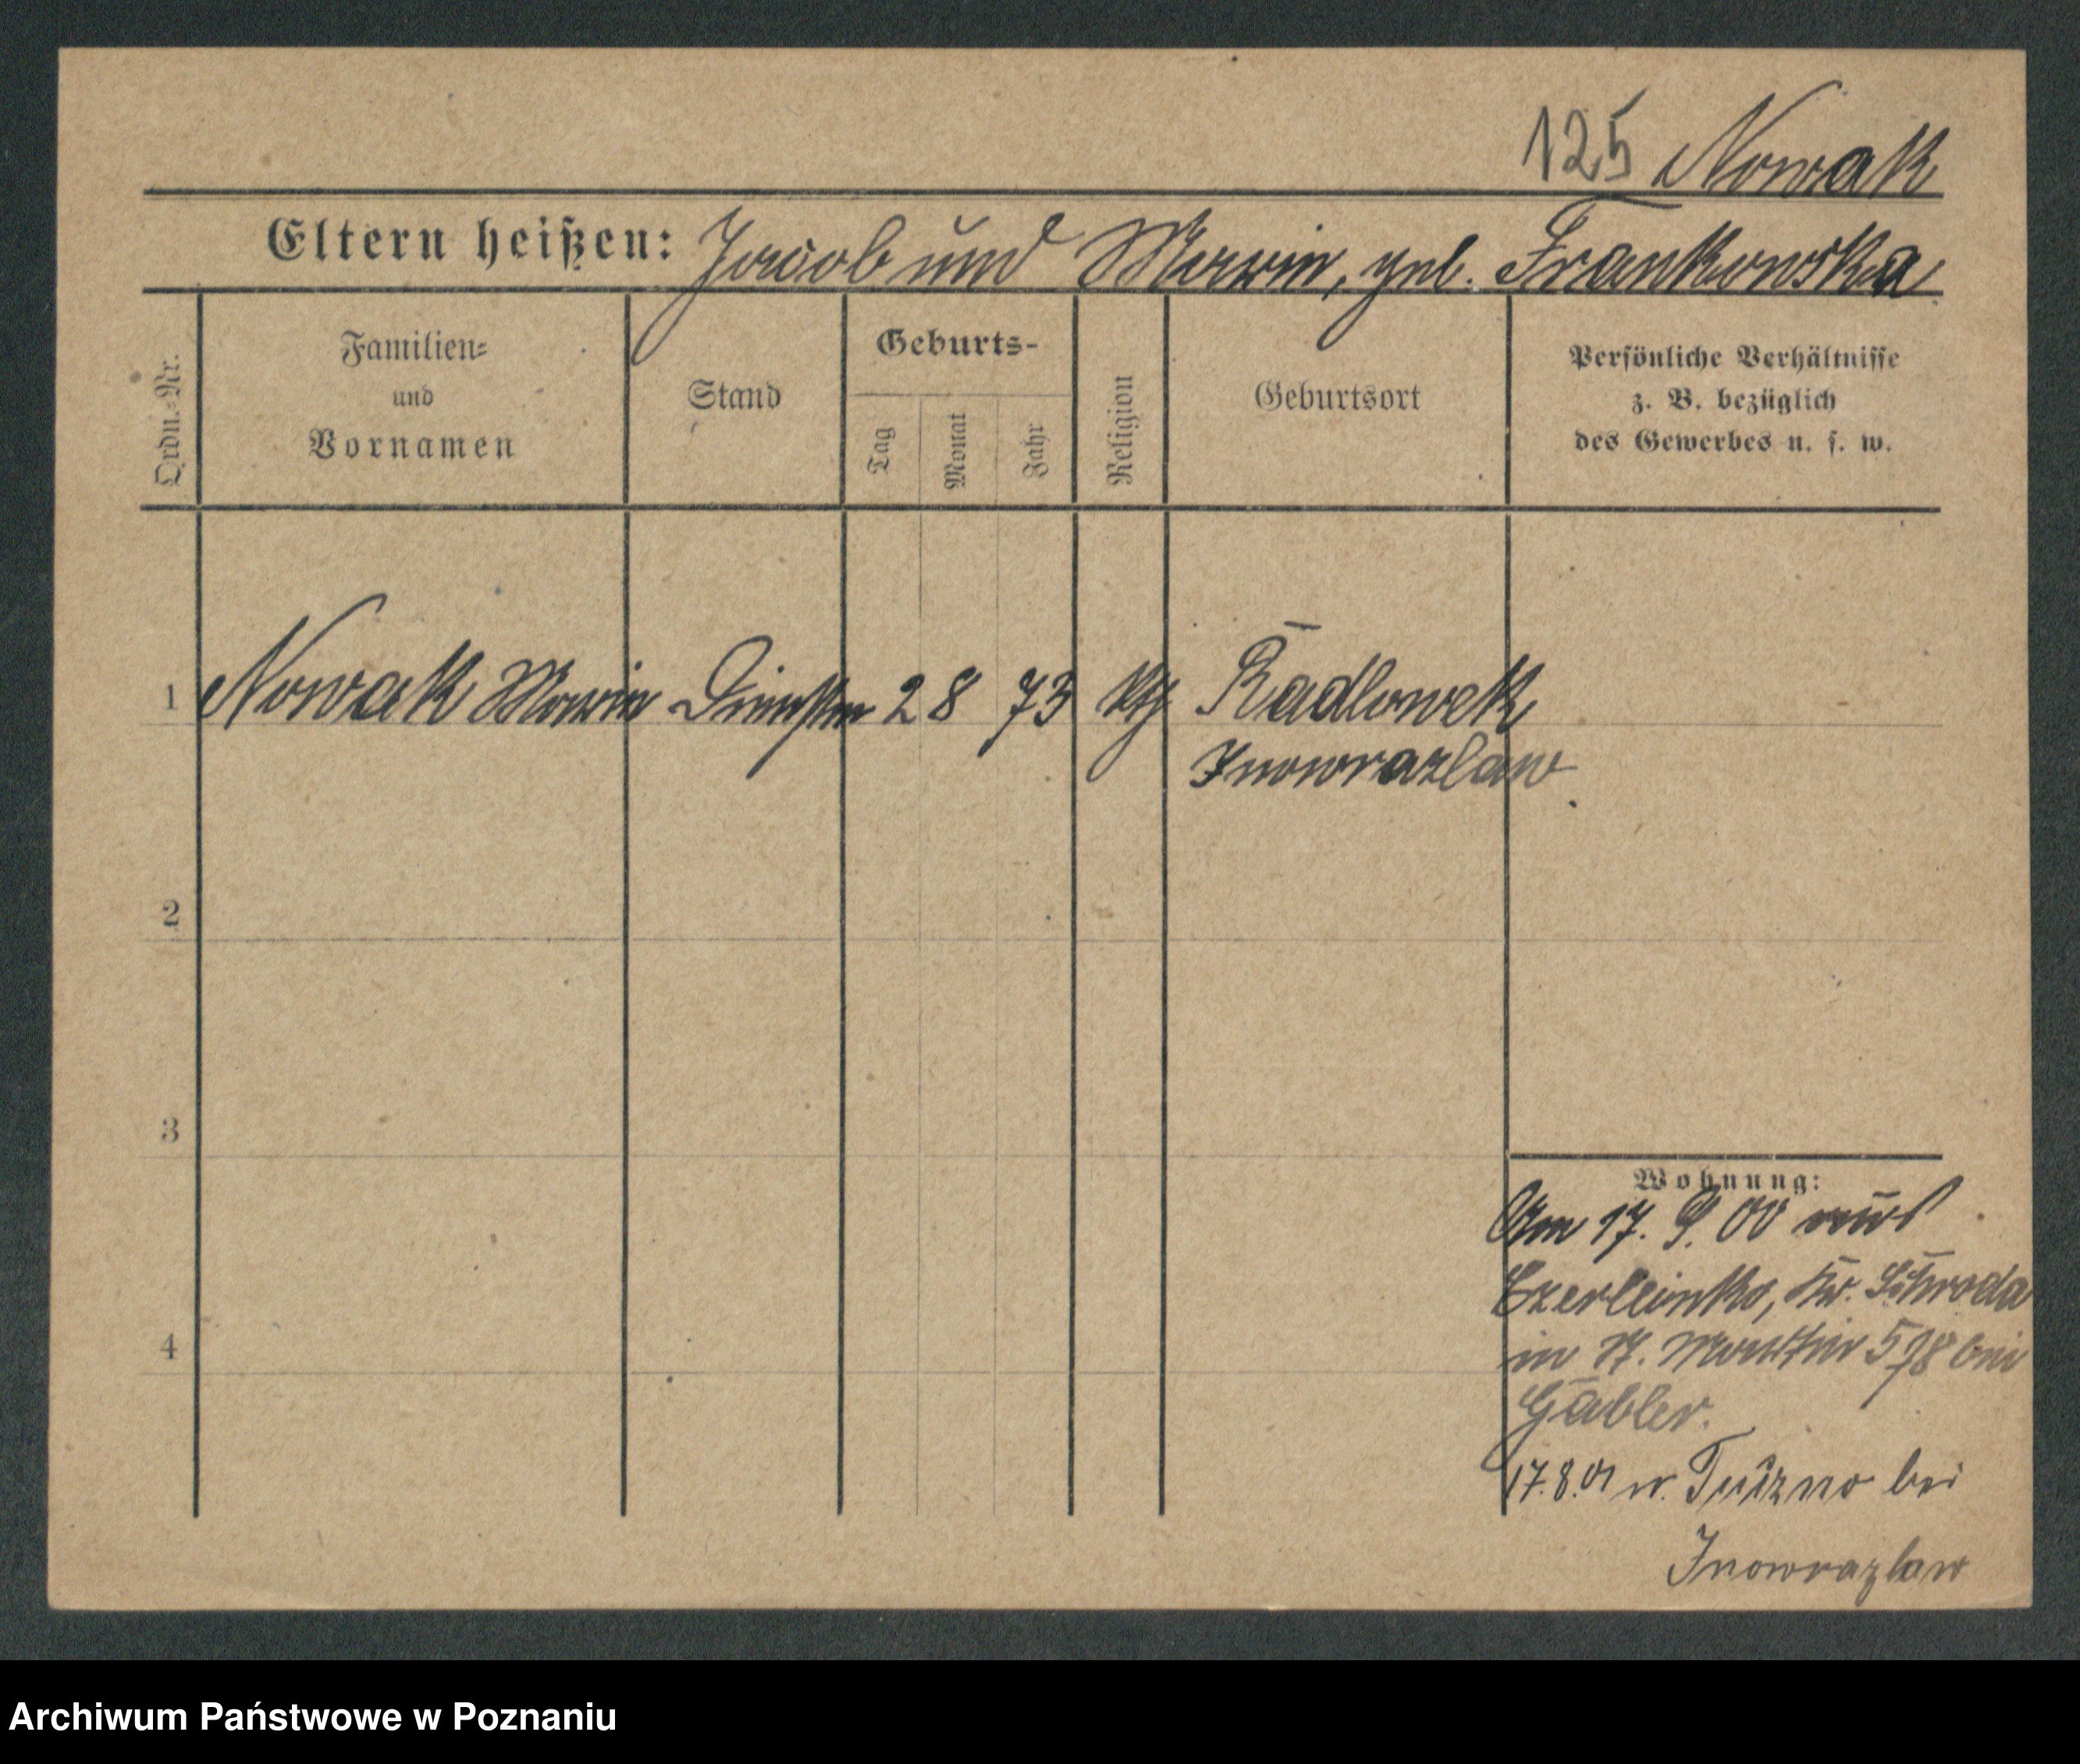 125 Nowak
Eltern heißen: Jacob und Marie, geb. Frankowska
Ordn.-Nr.
Familien-
und
Vornamen
Stand
Geburts-
Tag
Monat
Jahr
Religion
Geburtsort
Persönliche Verhältnisse
z. B. bezüglich
des Gewerbes u. s. w.
1 Nowak Marie 2 8 73 kth Radlowek
Inowrazlaw
2
3
4
Wohnung:
Am 17. 9. 00 aus
Czerleinko, Kr. Schroda
in St. Martin 578 bei
Gabler.
17.8.01 n. Tuczno bei
Inowrazlaw
Archiwum Państwowe w Poznaniu